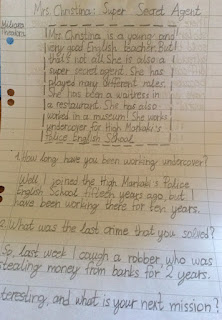 Mrs. Christina: Super Secret Agent
Mrs. Christina is a young and
very good English teacher. But
that's not all. She is also a
super secret agent. She has
played many different rules.
She has been a waitress in
a restaurant. She has also
worked in a museum! She works
undercover for High Maniaki's
Police English School
1. How long have you been working undercover?
Well I joined the High Maniaki's Police
English School fifteen years ago, but I
have been working there for ten years.
2. What was the last crime that you solved?
So, last week I caugh a robber who was
stealing money from banks for 2 years.
teresting, and what is your next mission?